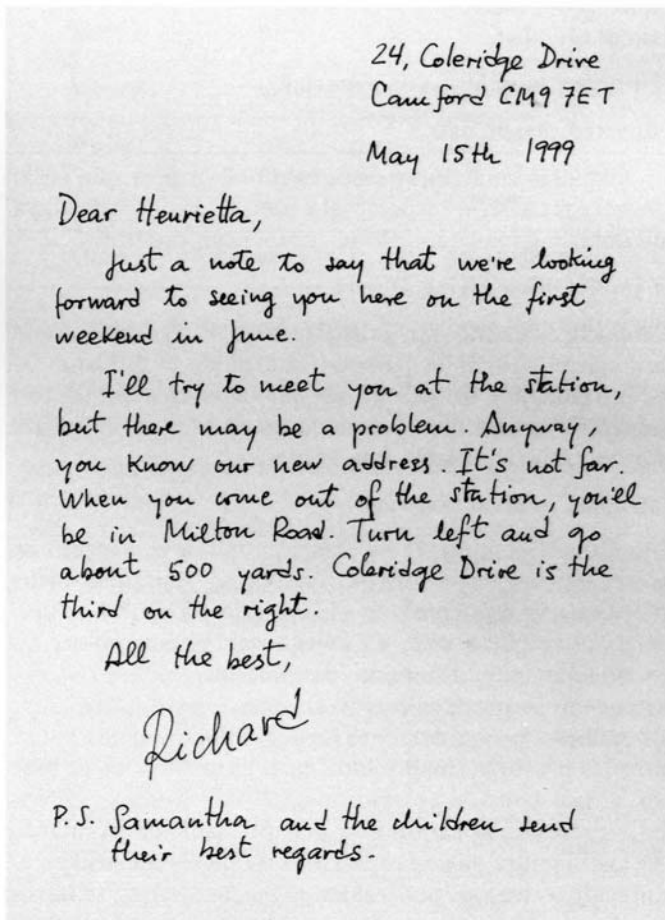 24, Coleridge Drive
Camford CM9 7ET
May 15th 1999
Dear Henrietta,
Just a note to say that we're looking
forward to seeing you here on the first
weekend in June.
I'll try to meet you at the station,
but there may be a problem. Anyway,
you know our new address. It's not far.
When you come out of the station, you'll
be in Milton Road. Turn left and go
about 500 yards. Coleridge Drive is the
third on the right.
All the best,
Richard
P.S. Samantha and the children send
their best regards.